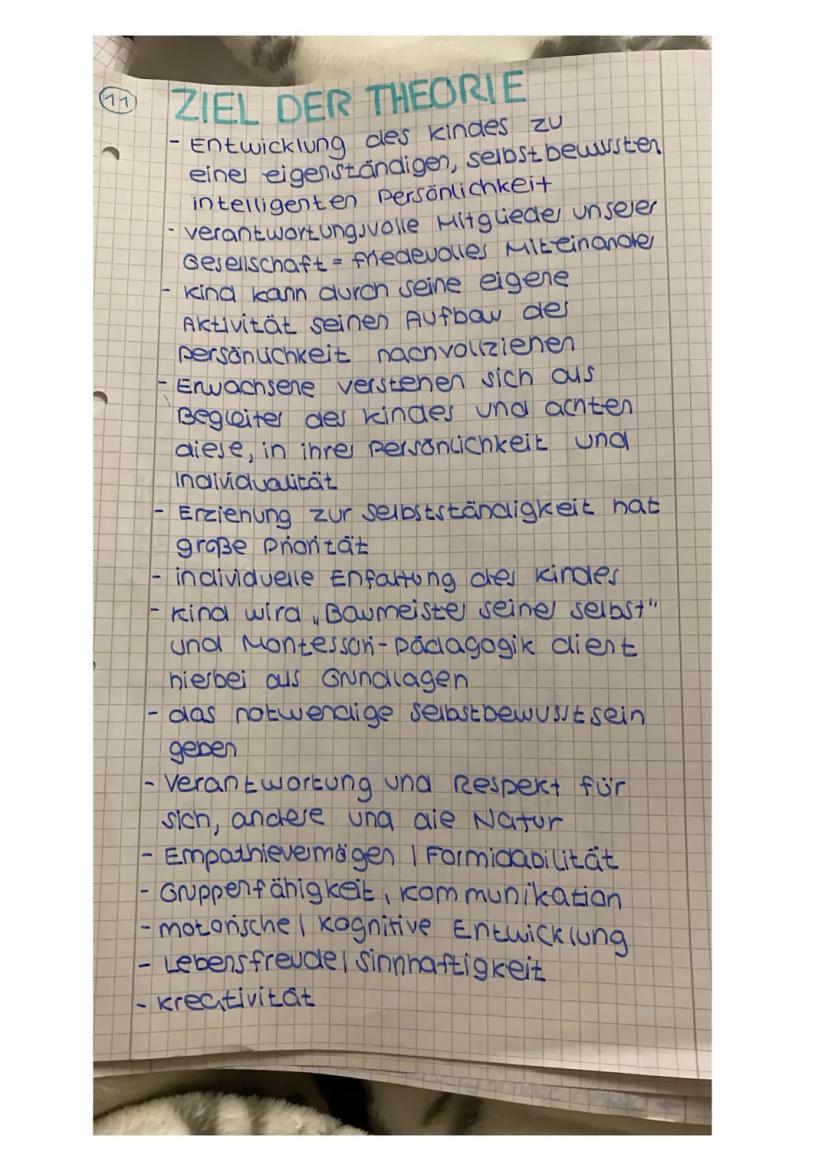 11 ZIEL DER THEORIE
- Entwicklung des Kindes zu
einer eigenständigen, selbstbewussten
intelligenten Persönlichkeit
- verantwortungsvolle Mitglieder unserer
Gesellschaft = friedevolles Miteinander
- Kind kann durch seine eigene
Aktivität seinen Aufbau der
Persönlichkeit nachvollziehen
- Erwachsene verstehen sich als
Begleiter des Kindes und achten
diese, in ihrer Persönlichkeit und
Individualität
- Erziehung zur Selbstständigkeit hat
große Priorität
- individuelle Enfaltung des Kindes
- Kind wird „Baumeister seiner selbst"
und Montessori-Pädagogik dient
hierbei als Grundlagen
- das notwendige Selbstbewusstsein
geben
- Verantwortung und Respekt für
sich, andere und die Natur
- Empathievermögen | Formidabilität
- Gruppenfähigkeit, Kommunikation
- motorische | kognitive Entwicklung
- Lebensfreude | Sinnhaftigkeit
- Kreativität